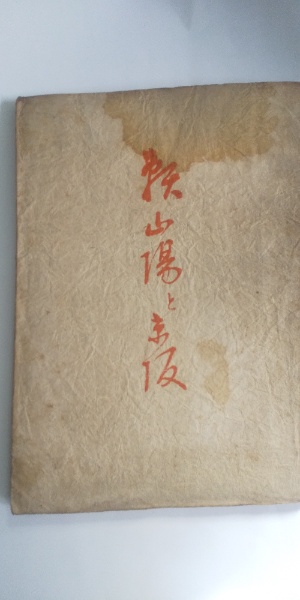 頼山陽と京阪